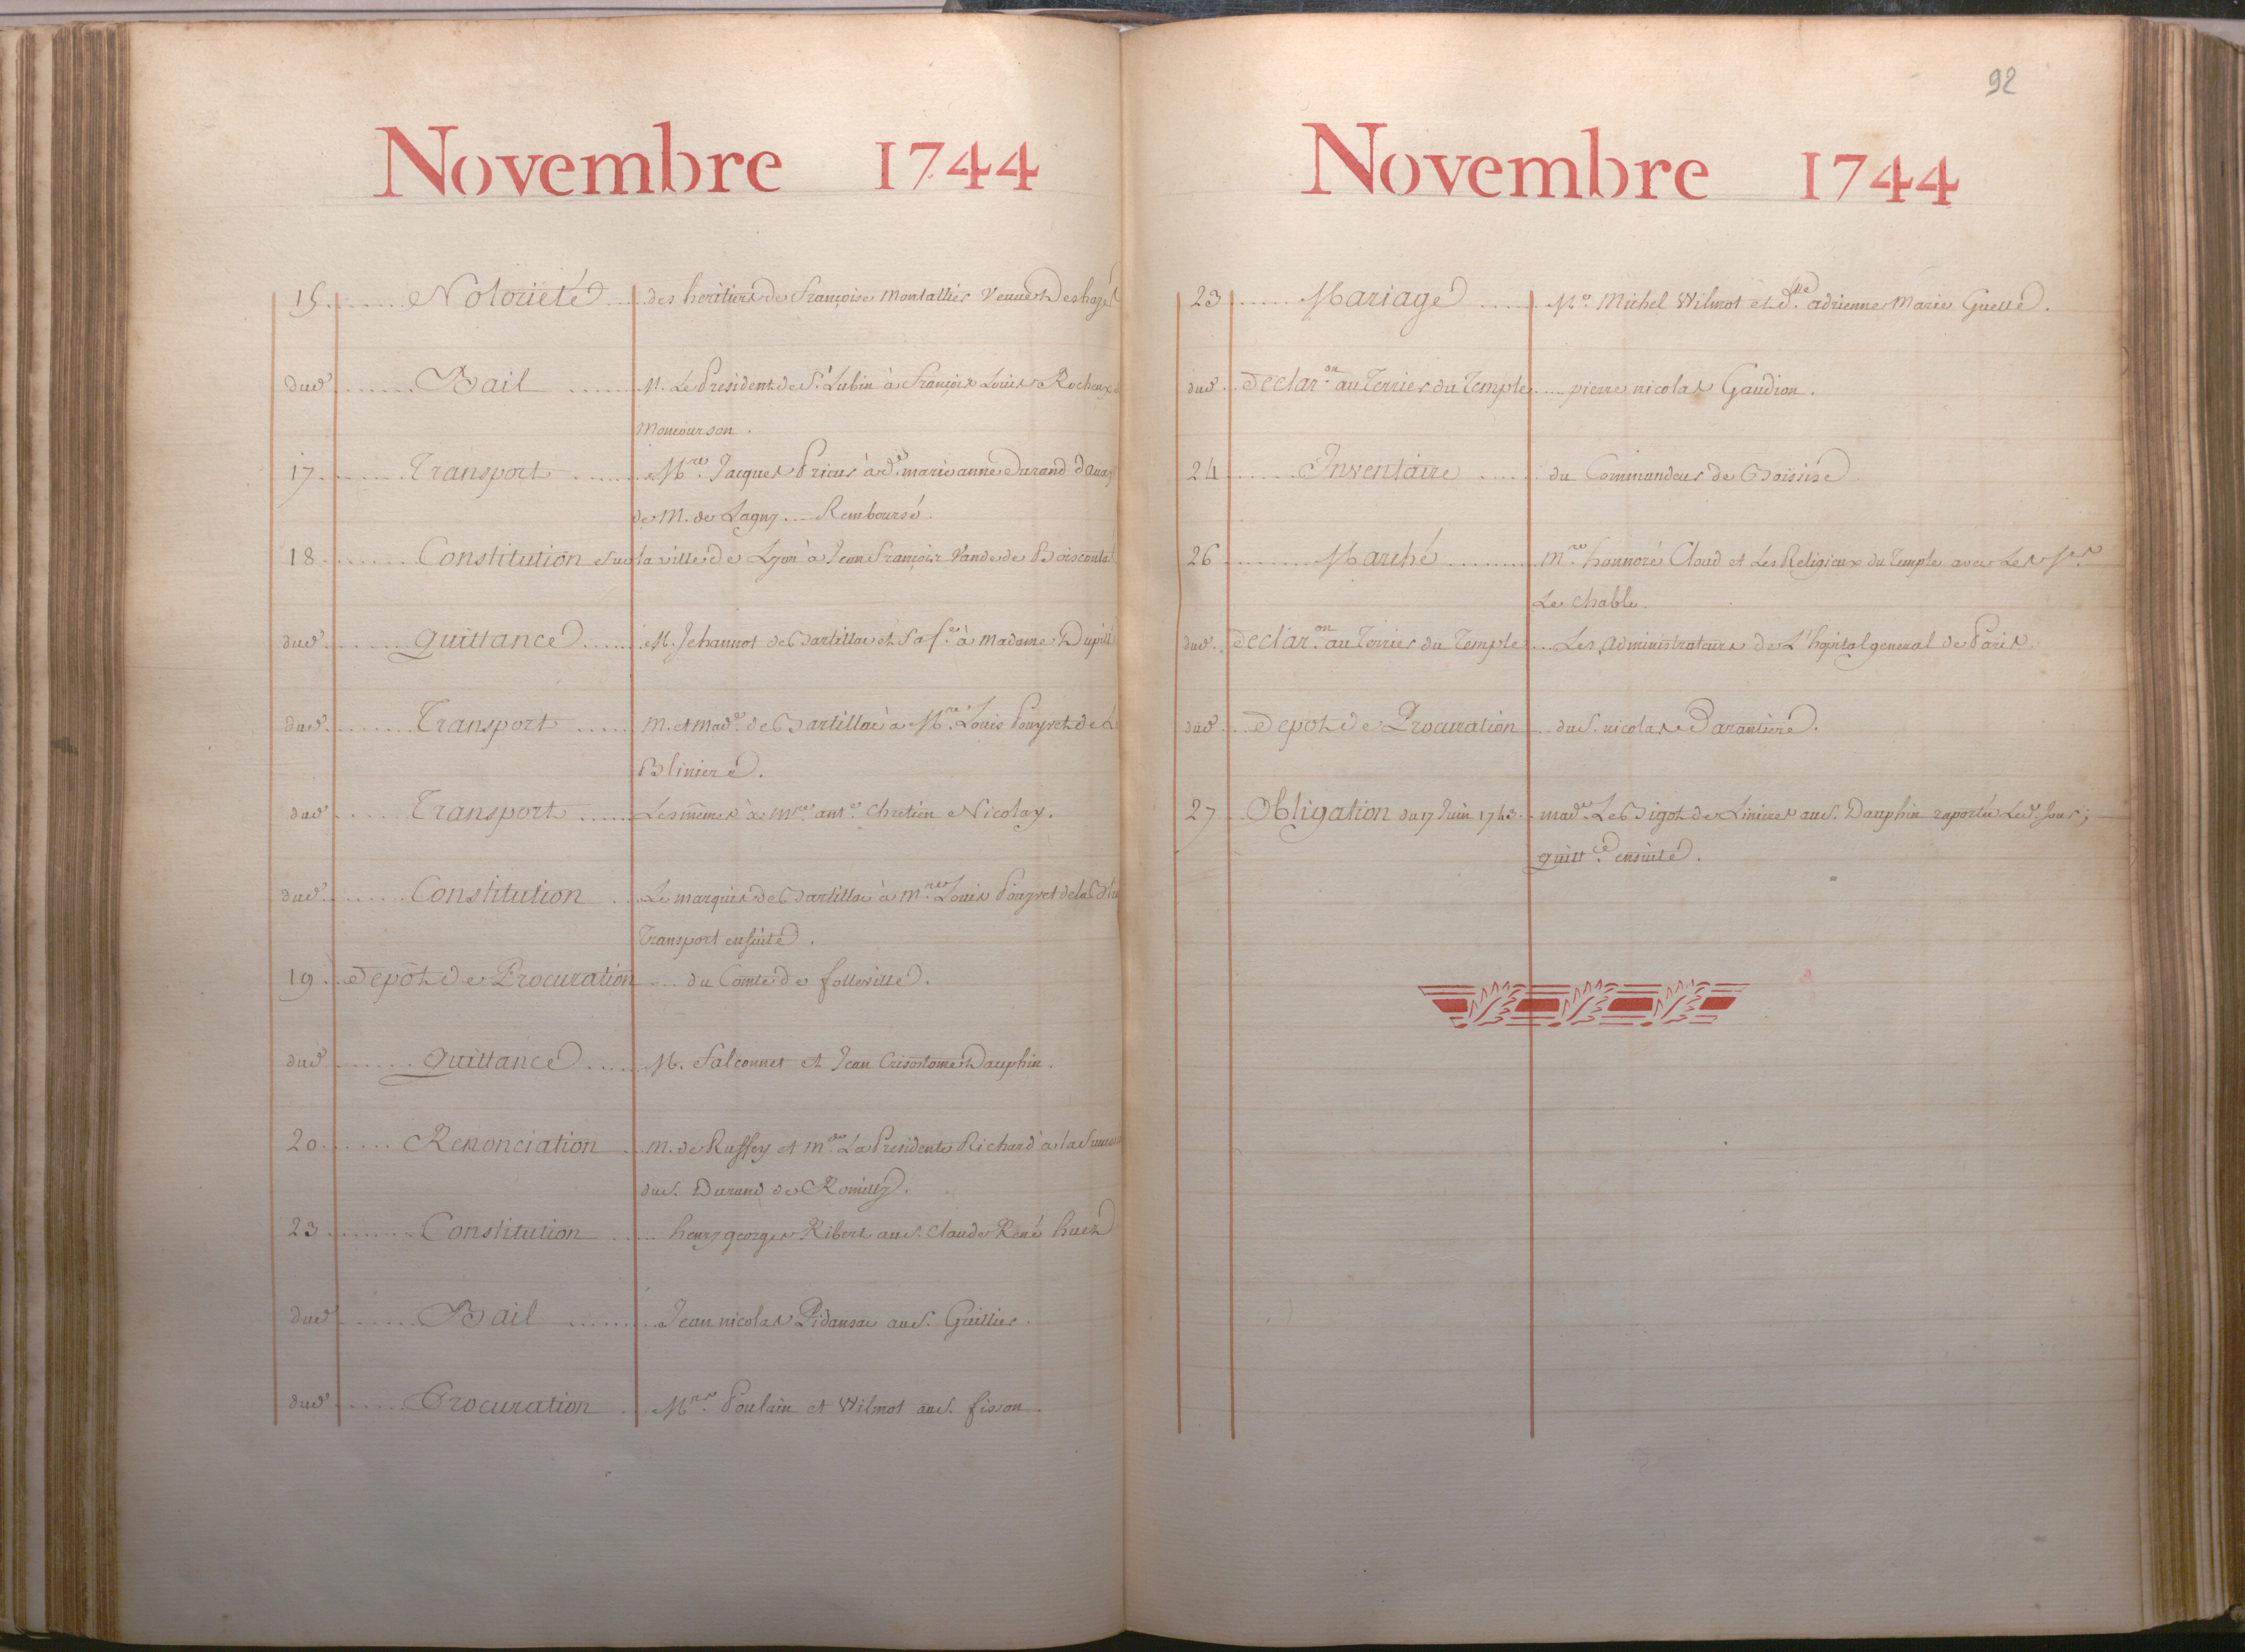 Novembre 1744
15 Notorieté des heritiers de françoise Montallier Veuve Deshayes
dud Bail M. Le President de St. Lubin à françois Louis Rocheux de
Moncourson.
17 Transport Mre. Jacques Prieur à de. marie anne Durand
de M. de Lagny. Remboursé.
18 Constitution sur la ville de Lyon à Jean françois Vande de
dud quittance M. Jehannot de Bartillac et Sa fe. à Madame
dud Transport M. et Made. de Bartillac à Mre. Louis Pouyvet de La
Bliniere.
dud Transport Les mêmes à Mre. ante. Chretien Nicolay.
dud Constitution Le marquis de Bartillac à Mre. Louis Pouyvet de la
Transport ensuite.
19 depôt de Procuration du Comte de folleville.
dud quittance M. Falconnet et Jean Crisostome Dauphin.
20 Renonciation M. de Ruffey et Mde. La Presidente Richard à la
du S. Durand de Romilly.
23 Constitution henry georges Ribert au S. Claude René huet
dud Bail Jean nicolas Pidansac au S. Guillier.
dud Procuration Mrs. Poulain et Wilmot au S. fisson.
92
Novembre 1744
23 Mariage Me. Michel Wilmot et dlle. adrienne Marie Guelle.
dud declaron. au Terrier du Temple pierre nicolas Gaudion.
24 Inventaire du Commandeur de Boissise
26 Marché Mre. honnoré Cloud et Les Religieux du Temple avec Le Sr.
Le Chable.
dud declaron. au Terrier du Temple Les Administrateurs de L'hopital general de Paris.
dud depot de Procuration du S. nicolas Parantiere.
27 Obligation du 17 Juin 1743 made. Le Bigot de Linieres au S. Dauphin raportée Led. Jour;
quittce. ensuite.